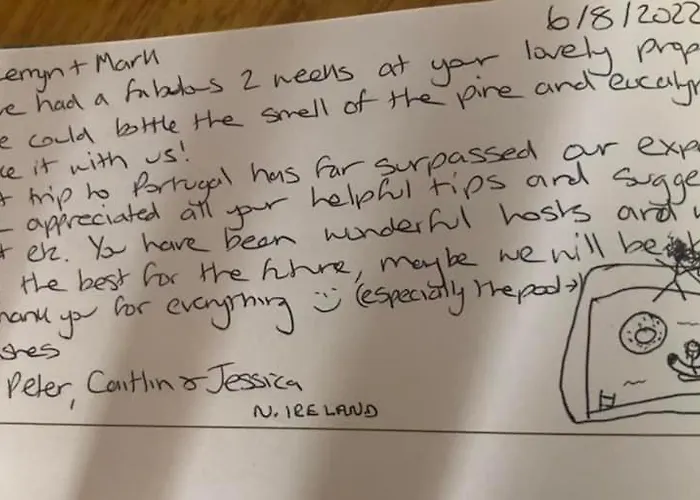 6/8/2022
erryn + Mark
ve had a fabulous 2 weeks at your lovely prop
e could bottle the smell of the pine and eucaly
ke it with us!
t trip to Portugal has far surpassed our exp
appreciated all your helpful tips and sugge
t etc. You have been wonderful hosts and w
the best for the future, maybe we will be
hank you for everything :) (especially the pool →)
shes
Peter, Caitlin & Jessica
N. IRELAND